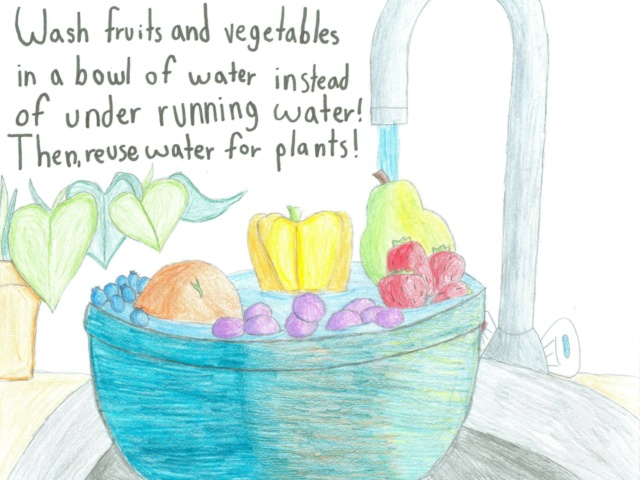 Wash fruits and vegetables
in a bowl of water instead
of under running water!
Then, reuse water for plants!